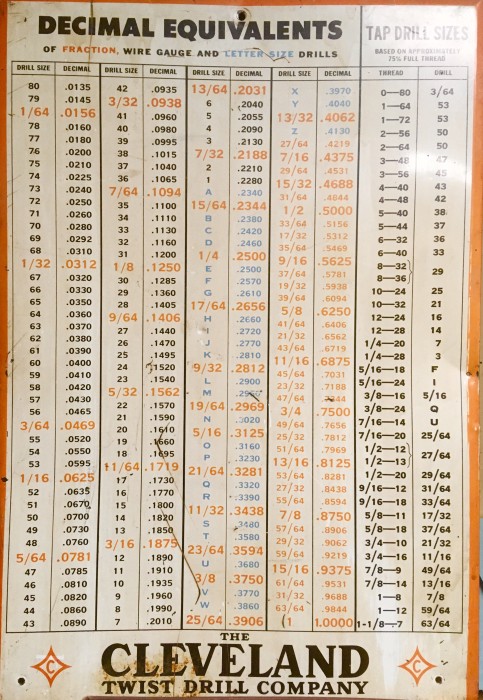 DECIMAL EQUIVALENTS
OF FRACTION, WIRE GAUGE AND LETTER SIZE DRILLS
DRILL SIZE DECIMAL
80 .0135
79 .0145
1/64 .0156
78 .0160
77 .0180
76 .0200
75 .0210
74 .0225
73 .0240
72 .0250
71 .0260
70 .0280
69 .0292
68 .0310
1/32 .0312
67 .0320
66 .0330
65 .0350
64 .0360
63 .0370
62 .0380
61 .0390
60 .0400
59 .0410
58 .0420
57 .0430
56 .0465
3/64 .0469
55 .0520
54 .0550
53 .0595
1/16 .0625
52 .0635
51 .0670
50 .0700
49 .0730
48 .0760
5/64 .0781
47 .0785
46 .0810
45 .0820
44 .0860
43 .0890
DRILL SIZE DECIMAL
42 .0935
3/32 .0938
41 .0960
40 .0980
39 .0995
38 .1015
37 .1040
36 .1065
7/64 .1094
35 .1100
34 .1110
33 .1130
32 .1160
31 .1200
1/8 .1250
30 .1285
29 .1360
28 .1405
9/64 .1406
27 .1440
26 .1470
25 .1495
24 .1520
23 .1540
5/32 .1562
22 .1570
21 .1590
20 .1610
19 .1660
18 .1695
11/64 .1719
17 .1730
16 .1770
15 .1800
14 .1820
13 .1850
3/16 .1875
12 .1890
11 .1910
10 .1935
9 .1960
8 .1990
7 .2010
DRILL SIZE DECIMAL
13/64 .2031
6 .2040
5 .2055
4 .2090
3 .2130
7/32 .2188
2 .2210
1 .2280
A .2340
15/64 .2344
B .2380
C .2420
D .2460
1/4 .2500
E .2500
F .2570
G .2610
17/64 .2656
H .2660
I .2720
J .2770
K .2810
9/32 .2812
L .2900
M
19/64 .2969
N .3020
5/16 .3125
O .3160
P .3230
21/64 .3281
Q .3320
R .3390
11/32 .3438
S .3480
T .3580
23/64 .3594
U .3680
3/8 .3750
V .3770
W .3860
25/64 .3906
DRILL SIZE DECIMAL
X .3970
Y .4040
13/32 .4062
Z .4130
27/64 .4219
7/16 .4375
29/64 .4531
15/32 .4688
31/64 .4844
1/2 .5000
33/64 .5156
17/32 .5312
35/64 .5469
9/16 .5625
37/64 .5781
19/32 .5938
39/64 .6094
5/8 .6250
41/64 .6406
21/32 .6562
43/64 .6719
11/16 .6875
45/64 .7031
23/32 .7188
47/64
3/4 .7500
49/64 .7656
25/32 .7812
51/64 .7969
13/16 .8125
53/64 .8281
27/32 .8438
55/64 .8594
7/8 .8750
57/64 .8906
29/32 .9062
59/64 .9219
15/16 .9375
61/64 .9531
31/32 .9688
63/64 .9844
1 1.0000
TAP DRILL SIZES
BASED ON APPROXIMATELY
75% FULL THREAD
THREAD DRILL
0—80 3/64
1—64 53
1—72 53
2—56 50
2—64 50
3—48 47
3—56 45
4—40 43
4—48 42
5—40 38
5—44 37
6—32 36
6—40 33
8—32
8—36 29
10—24 25
10—32 21
12—24 16
12—28 14
1/4—20 7
1/4—28 3
5/16—18 F
5/16—24 I
3/8—16 5/16
3/8—24 Q
7/16—14 U
7/16—20 25/64
1/2—12
1/2—13 27/64
1/2—20 29/64
9/16—12 31/64
9/16—18 33/64
5/8—11 17/32
5/8—18 37/64
3/4—10 21/32
3/4—16 11/16
7/8—9 49/64
7/8—14 13/16
1—8 7/8
1—12 59/64
1-1/8—7 63/64
THE
C CLEVELAND C
TWIST DRILL COMPANY